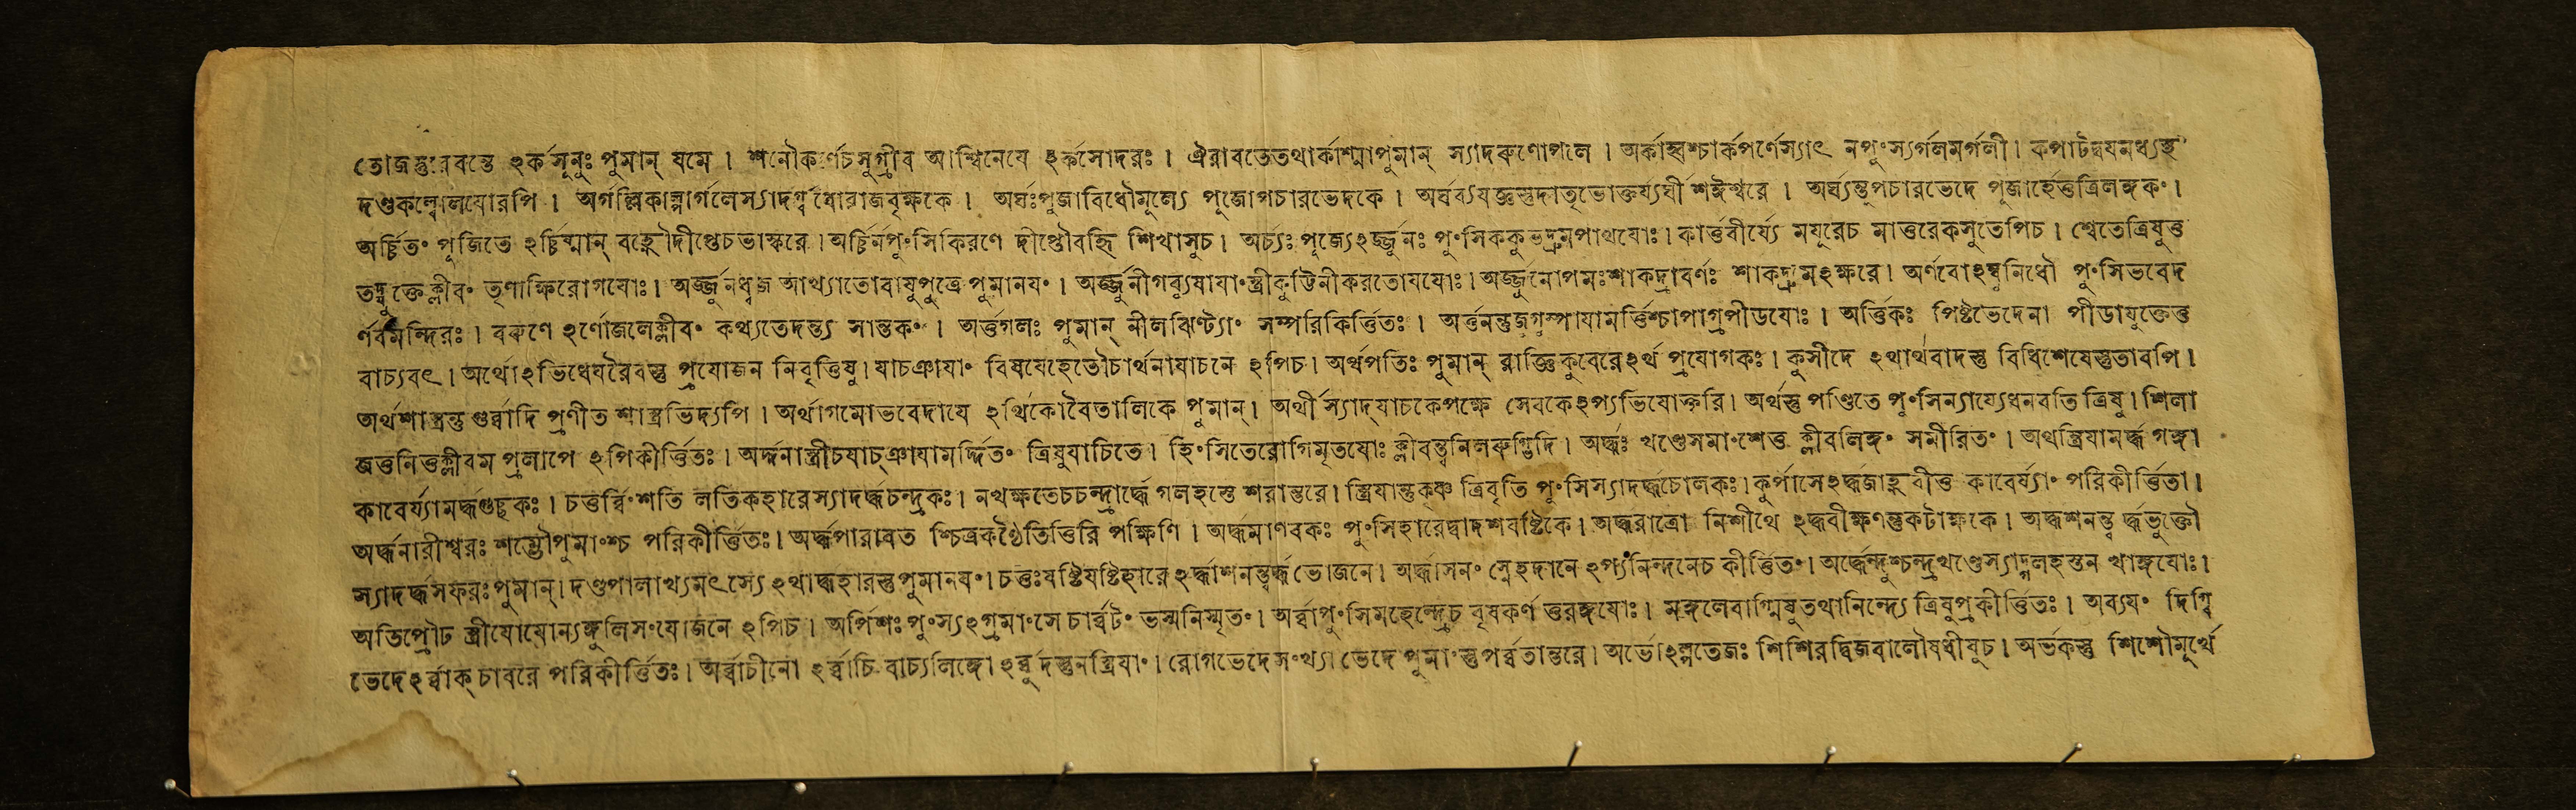 তোজন্তুরেবন্তে ঽর্কসূনুঃ পুমান্ যমে । শনৌকর্ণেচসুগ্রীব আশ্বিনেযে ঽর্কসোদরঃ । ঐরাবতেতথার্কাশ্মাপুমান্ স্যাদরুণোপলে । অর্কাহ্বশ্চার্কপর্ণেস্যাৎ নপুংস্যর্গলমর্গলী । কপাটদ্বযমধ্যস্থ
দণ্ডকল্লোলযোরপি । অর্গল্লিকাল্পার্গলেস্যাদর্গ্বধোরাজবৃক্ষকে । অর্ঘঃপূজাবিধৌমূল্যে পূজোপচারভেদকে । অর্ঘব্যযজ্ঞস্তুদাতৃভোক্তর্য্যর্ঘীশঈশ্বরে । অর্ঘ্যন্তুপচারভেদে পূজার্হেত্তত্রিলিঙ্গকং ।
অর্চ্চিতং পূজিতে ঽর্চ্চিষ্মান্ বহ্নৌদীপ্তেচভাস্করে । অর্চ্চির্নপুংসিকিরণে দীপ্তৌবহ্নি শিখাসুচ । অর্চ্যঃ পূজ্যেঽর্জ্জুনঃ পুংসিককুভদ্রুমপার্থযোঃ । কার্ত্তবীর্য্যে মযূরেচ মাত্তরেকসুতেপিচ । শ্বেতেত্রিষুত্ত
তদ্যুক্তেক্লীবং তৃণাক্ষিরোগযোঃ । অর্জ্জুনধ্বজ আখ্যাতোবাযুপুত্রে পুমানযং । অর্জ্জুনীগব্যুষাযাংস্ত্রীকুট্টিনীকরতোযযোঃ । অর্জ্জুনোপমঃশাকদ্রাবর্ণঃ শাকদ্রুমঽক্ষরে । অর্ণবোঽম্বুনিধৌ পুংসিভবেদ
র্ণবমন্দিরঃ । বরুণে ঽর্ণোজলেক্লীবং কথ্যতেদন্ত্য সান্তকং । অর্ত্তগলঃ পুমান্ নীলঝিণ্ট্যাং সম্পরিকির্ত্তিতঃ । অর্ত্তনন্তুজগুপ্সাযামর্ত্তিশ্চাপাগ্রপীডযোঃ । অর্ত্তিকঃ পিষ্টভেদেনা পীডাযুক্তেত্ত
বাচ্যবৎ । অর্থোঽভিধেযরৈবস্তু প্রযোজন নিবৃত্তিষু । যাচঞাযাং বিষযেহেতৌচার্থনাযাচনে ঽপিচ । অর্থপতিঃ পুমান্ রাজ্ঞিকুবেরেঽর্থ প্রযোগকঃ । কুসীদে ঽথার্থবাদস্তু বিধিশেষেস্তুতাবপি ।
অর্থশাস্ত্রন্তু গুর্ব্বাদি প্রণীত শাস্ত্রভিদ্যপি । অর্থাগমোভবেদাযে ঽর্থিকোবৈতালিকে পুমান্ । অর্থী স্যাদ্যাচকেপক্ষে সেবকেঽপ্যভিযোক্তরি । অর্থস্তু পণ্ডিতে পুংসিন্যায্যেধনবতি ত্রিষু । শিলা
জত্তনিত্তক্লীবম প্রলাপে ঽপিকীর্ত্তিতঃ । অর্দ্দনাস্ত্রীচযাচ্ঞাযামর্দ্দিতং ত্রিষুযাচিতে । হিংসিতেরোগিমৃতযোঃ ক্লীবন্ত্বনিলরুগ্ভিদি । অর্দ্ধঃ খণ্ডেসমাংশেত্ত ক্লীবলিঙ্গং সমীরিতং । অথস্ত্রিযামর্দ্ধ গঙ্গা
কাবের্য্যামর্দ্ধগুচ্ছকঃ । চত্তর্বিংশতি লতিকহারেস্যাদর্দ্ধচন্দ্রকঃ । নখক্ষতেচচন্দ্রার্দ্ধে গলহস্তে শরান্তরে । স্ত্রিযান্তুকৃষ্ণ ত্রিবৃতি পুংসিস্যাদর্দ্ধচোলকঃ । কূর্পাসেঽর্দ্ধজাহ্নবীত্ত কাবের্য্যাং পরিকীর্ত্তিতা ।
অর্দ্ধনারীশ্বরঃ শম্ভৌপুমাংশ্চ পরিকীর্ত্তিতঃ । অর্দ্ধপারাবত শ্চিত্রকণ্ঠেতিত্তিরি পক্ষিণি । অর্দ্ধমাণবকঃ পুংসিহারেদ্বাদশষষ্টিকে । অর্দ্ধরাত্রো নিশীথে ঽর্দ্ধবীক্ষণন্তুকটাক্ষকে । অর্দ্ধশনন্ত্ব র্দ্ধভুক্তৌ
স্যাদর্দ্ধসফরঃপুমান্ । দণ্ডপালাখ্যমৎস্যে ঽথার্দ্ধহারস্তুপুমানযং । চত্তঃষষ্টিযষ্টিহারে ঽর্দ্ধাশনন্ত্বর্দ্ধভোজনে । অর্দ্ধাসনং স্নেহদানে ঽপ্যনিন্দনেচ কীর্ত্তিতং । অর্দ্ধেন্দুশ্চন্দ্রখণ্ডেস্যাদ্গলহস্তন খাঙ্গযোঃ ।
অতিপ্রৌঢ স্ত্রীযোযোন্যঙ্গুলিসংযোজনে ঽপিচ । অর্পিশঃ পুংস্যঽগ্রমাংসে চার্ব্বটং ভস্মনিস্মৃতং । অর্ব্বাপুংসিমহেন্দ্রেচ বৃষকর্ণ ত্তরঙ্গযোঃ । মঙ্গলেবাগ্মিষুতথানিন্দ্যে ত্রিষুপ্রকীর্ত্তিতঃ । অব্যযং দিগ্বি
ভেদেঽর্ব্বাক্ চাবরে পরিকীর্ত্তিতঃ । অর্ব্বাচীনো ঽর্ব্বাচি বাচ্যলিঙ্গোঽর্ব্বুদস্তুনস্ত্রিযাং । রোগভেদেসংখ্যা ভেদে পুমাংস্তুপর্ব্বতান্তরে । অর্ভোঽল্পতেজঃ শিশিরদ্বিজবালৌষধীষুচ । অর্ভকস্তু শিশৌমূর্খে